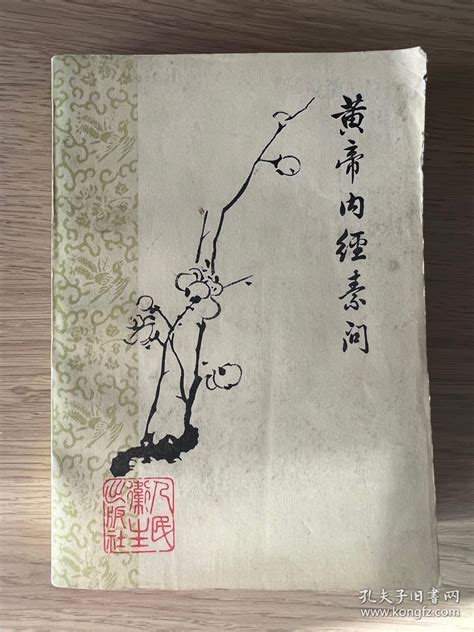 黄帝内經素问
人民
衞生
出版社
孔夫子旧书网
www.kongfz.com